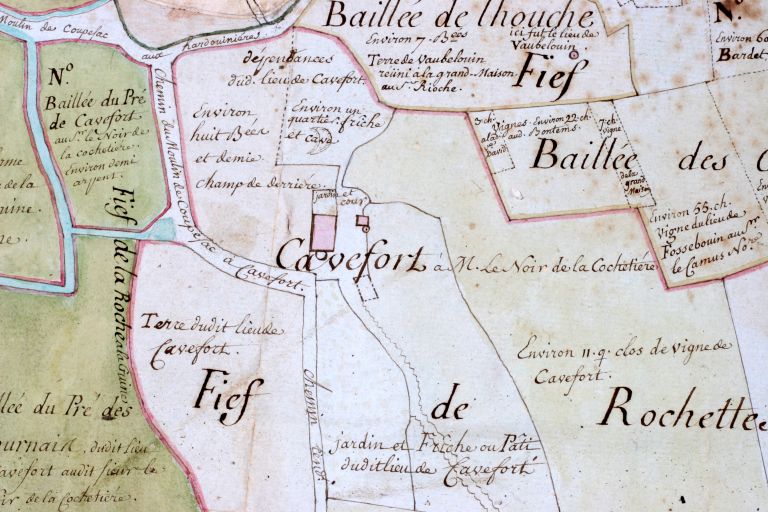 Moulin de Coupesac
aux hardouinières
Baillée de lhouche
Environ 7. Bées
ici fut le lieu de
Vaubelouin
Terre de Vaubelouin
reüni à la grand-Maison
au Sr. Rioche.
Fief
N.º
Environ 60
Bardet
N.º
Baillée du Pré
de Cavefort
au Sr. le Noir de
la cochetière.
Environ demi
arpent.
Chemin du Moulin de Coupesac à Cavefort.
dépendances
dud. lieu de Cavefort.
Environ
huit Bées
et demie
champ de derrière
Environ un
quartier friche
et Cave
jardin et
cour
3 ch.
a la
David
Vignes. Environ 22 ch.
aud. Bontems.
7 ch.
Vigne
Baillée des
de la
grand
Maison
Environ 55. ch.
Vigne du lieu de
Fossebouin au Sr.
le Camus Nore.
Fief de la Roche a la Guine
Cavefort à M. Le Noir de la Cochetière
Terre dudit lieu de
Cavefort.
Environ 11. q. clos de vigne de
Cavefort.
Fief de Rochettes
Chemin
jardin et Friche ou Pâti
dudit lieu de Cavefort
llée du Pré des
ournais, dudit lieu
Cavefort audit sieur le
ir de la Cochetière.